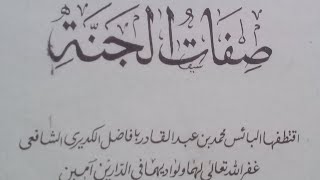 صِفَاتُ الْجَنَّةِ
اقتطفها البائس محمد بن عبد القادر بافاضل الكديري الشافعي
غفر الله تعالى لهما ولوالديهما في الدارين آمين